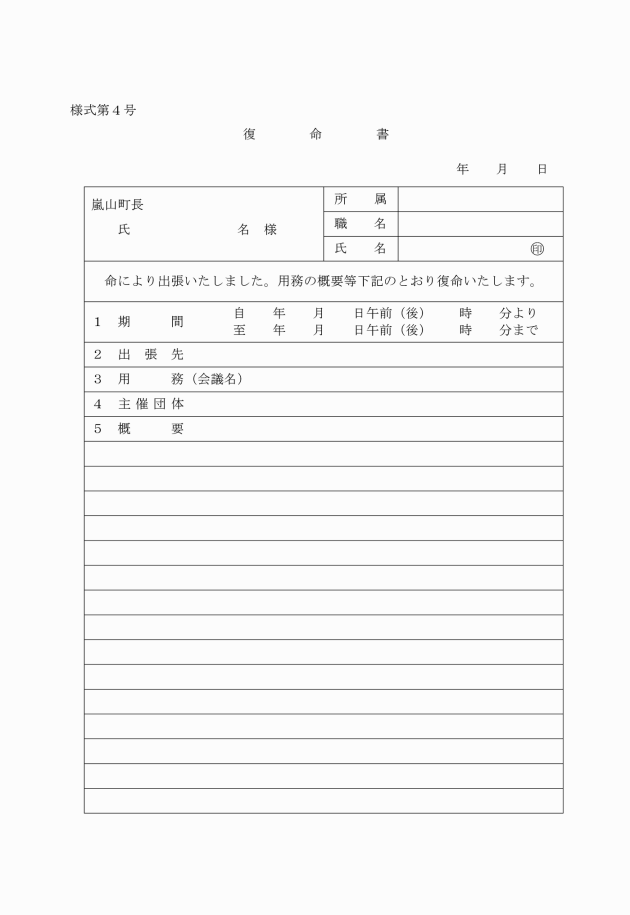 様式第４号
復　　　命　　　書
年　　月　　日
嵐山町長
氏　　　　　　　　名　様
所　　属
職　　名
氏　　名　　　　　　　　　　　㊞
命により出張いたしました。用務の概要等下記のとおり復命いたします。
１　期　　　間　　　自　　年　　月　　日午前（後）　　時　　分より
至　　年　　月　　日午前（後）　　時　　分まで
２　出　張　先
３　用　　　務（会議名）
４　主 催 団 体
５　概　　　要